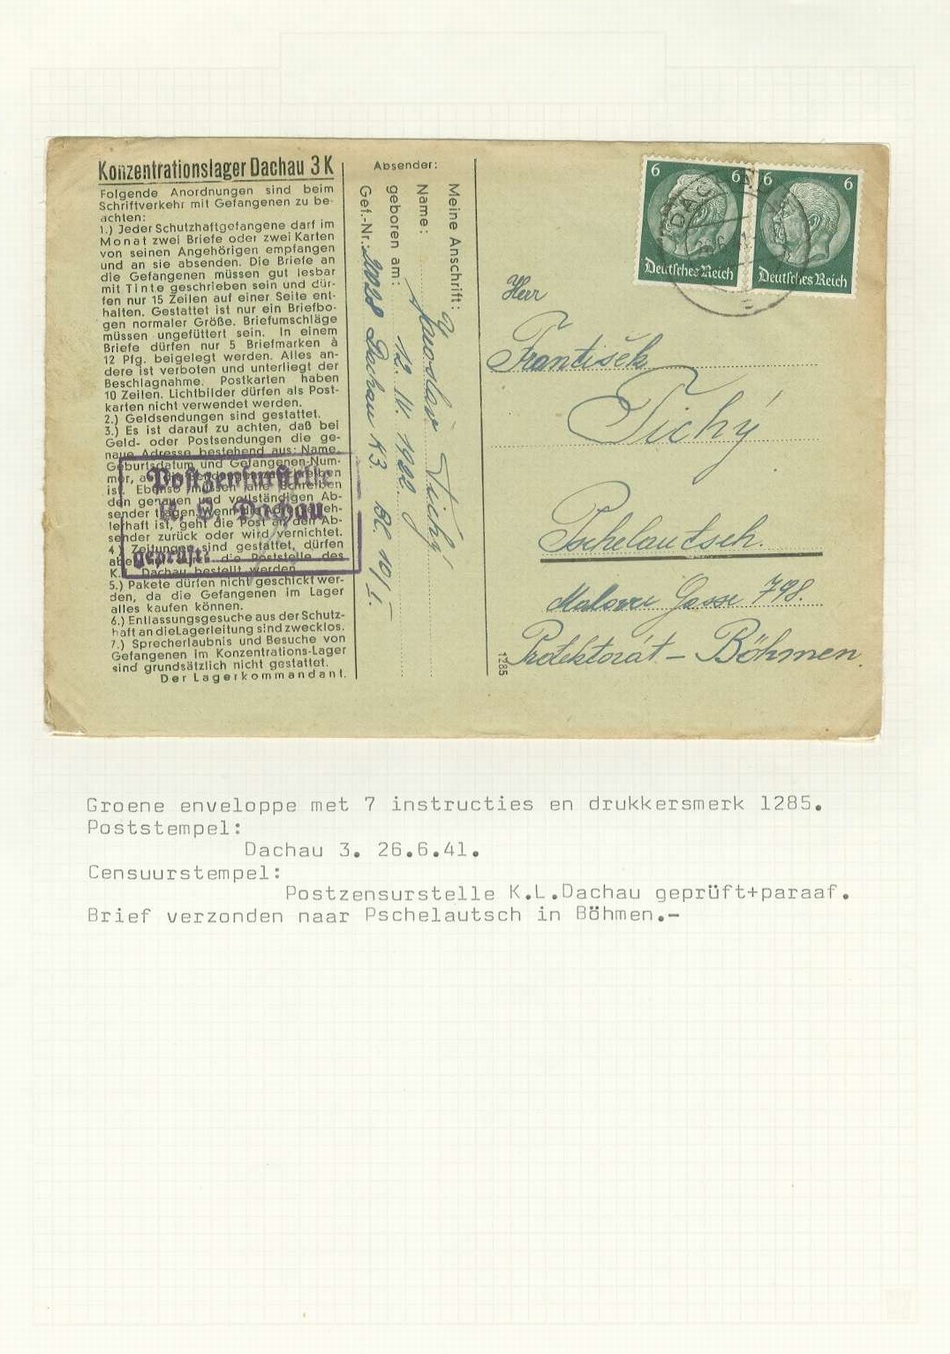 Konzentrationslager Dachau 3 K
Folgende Anordnungen sind beim
Schriftverkehr mit Gefangenen zu be-
achten:
1.) Jeder Schutzhaftgefangene darf im
Monat zwei Briefe oder zwei Karten
von seinen Angehörigen empfangen
und an sie absenden. Die Briefe an
die Gefangenen müssen gut lesbar
mit Tinte geschrieben sein und dür-
fen nur 15 Zeilen auf einer Seite ent-
halten. Gestattet ist nur ein Briefbo-
gen normaler Größe. Briefumschläge
müssen ungefüttert sein. In einem
Briefe dürfen nur 5 Briefmarken à
12 Pfg. beigelegt werden. Alles an-
dere ist verboten und unterliegt der
Beschlagnahme. Postkarten haben
10 Zeilen. Lichtbilder dürfen als Post-
karten nicht verwendet werden.
2.) Geldsendungen sind gestattet.
3.) Es ist darauf zu achten, daß bei
Geld- oder Postsendungen die ge-
naue Adresse bestehend aus: Name,
Geburtsdatum und Gefangenen-Num-
mer, a
ist. Ebenso müssen alle Schreiben
den genauen und vollständigen Ab-
sender tragen, wenn
lerhaft ist, geht die Post an den Ab-
sender zurück oder wird vernichtet.
4.) Zeitungen sind gestattet, dürfen
aber die Poststelle des
K. Dachau bestellt werden.
5.) Pakete dürfen nicht geschickt wer-
den, da die Gefangenen im Lager
alles kaufen können.
6.) Entlassungsgesuche aus der Schutz-
haft an die Lagerleitung sind zwecklos.
7.) Sprecherlaubnis und Besuche von
Gefangenen im Konzentrations-Lager
sind grundsätzlich nicht gestattet.
Der Lagerkommandant.
Postzensurstelle
K. L. Dachau
geprüft:
Absender:
Meine Anschrift:
Name: Jaroslav Tichý
geboren am: 12. IV. 1922.
Gef.-Nr.: 20028 Dachau K3. Bl. 10/I.
6 6 6 6
Deutsches Reich Deutsches Reich
DACHAU
Herr
František
Tichý
Pschelautsch.
Malowi Gasse 798.
Protektorát - Böhmen.
1285
Groene enveloppe met 7 instructies en drukkersmerk 1285.
Poststempel:
Dachau 3. 26.6.41.
Censuurstempel:
Postzensurstelle K.L.Dachau geprüft+paraaf.
Brief verzonden naar Pschelautsch in Böhmen.-